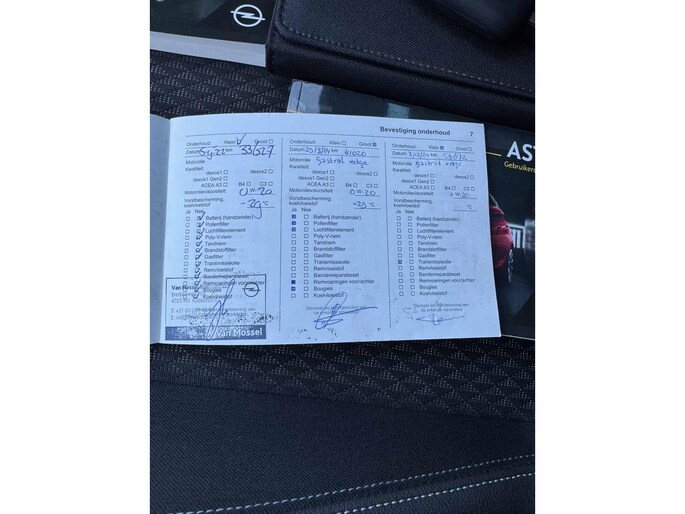 Bevestiging onderhoud 7
Onderhoud: Klein Groot
Datum: 5-9-22 km 33527
Motorolie
Kwaliteit:
dexos1 dexos2
dexos1 Gen2
ACEA A3 B4 C3
Motorolieviscositeit:
0W-20
Vorstbescherming,
koelvloeistof
-29 °C
Ja Nee
Batterij (handzender)
Pollenfilter
Luchtfilterelement
Poly-V-riem
Tandriem
Brandstoffilter
Gasfilter
Transmissieolie
Remvloeistof
Bandenreparatieset
Remvoeringen voor/achter
Bougies
Koelvloeistof
Van Mossel
Van Mossel
Onderhoud: Klein Groot
Datum: 25/3/24 km 41020
Motorolie
Kwaliteit:
dexos1 dexos2
dexos1 Gen2
ACEA A3 B4
Motorolieviscositeit:
0W-20
Vorstbescherming,
koelvloeistof
-29 °C
Ja Nee
Batterij (handzender)
Pollenfilter
Luchtfilterelement
Poly-V-riem
Tandriem
Brandstoffilter
Gasfilter
Transmissieolie
Remvloeistof
Bandenreparatieset
Remvoeringen voor/achter
Bougies
Koelvloeistof
Onderhoud: Klein Groot
Motorolie
Kwaliteit:
dexos1 dexos2
dexos1 Gen2
ACEA A3 B4
Motorolieviscositeit:
0W-20
Vorstbescherming,
koelvloeistof
°C
Ja Nee
Batterij (handzender)
Pollenfilter
Luchtfilterelement
Poly-V-riem
Tandriem
Brandstoffilter
Gasfilter
Transmissieolie
Remvloeistof
Bandenreparatieset
Remvoeringen voor/achter
Bougies
Koelvloeistof
AST
Gebruikers